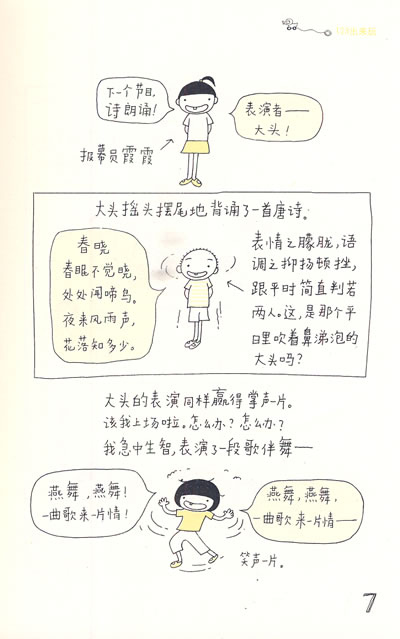 下一个节目，
诗朗诵！
表演者——
大头！
报幕员霞霞
大头摇头摆尾地背诵了一首唐诗。
春晓
春眠不觉晓，
处处闻啼鸟。
夜来风雨声，
花落知多少。
表情之朦胧，语
调之抑扬顿挫，
跟平时简直判若
两人。这，是那个平
日里吹着鼻涕泡的
大头吗？
大头的表演同样赢得掌声一片。
该我上场啦。怎么办？怎么办？
我急中生智，表演了一段歌伴舞——
燕舞，燕舞！
一曲歌来一片情！
燕舞，燕舞，
一曲歌来一片情——
笑声一片。
7